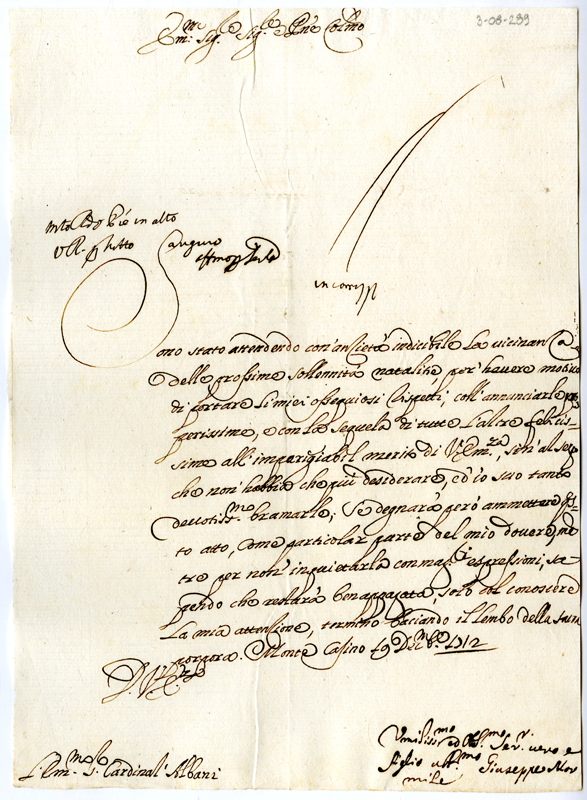 3-08-299
Em:mo Sig.re Sig.re e Pne Colmo
in alto
tutto
augure
in corrispp
Sono stato attendendo con ansietà indicibile la vicinanza
delle prossime sollennità natalitie per havere motivo
di portare li miei ossequiosi rispetti, coll'annunciarle pros
perissime, e con la sequela di tutte l'altre felicis=
sime all'impregiabil merito di V. Em.za, sin al segno
che non habbia che più desiderare, ed io suo tanto
devotiss.mo bramarle; Si degnarà però ammettere q.s=
to atto, come particolar parte del mio dovere, men
tre per non inquietarla con mag.ri espressioni, sa=
pendo che restarà ben appagata, solo col conoscere
la mia attensione, termino baciando il lembo della sacra
porpora. Monte Casino 19 Dec.mbe 1712
D. V. Em.za
Umiliss.mo ed Obl.mo Ser.r vero e
figlio Giuseppe Mor
mile
S.r Em.mo S. Cardinal' Albani